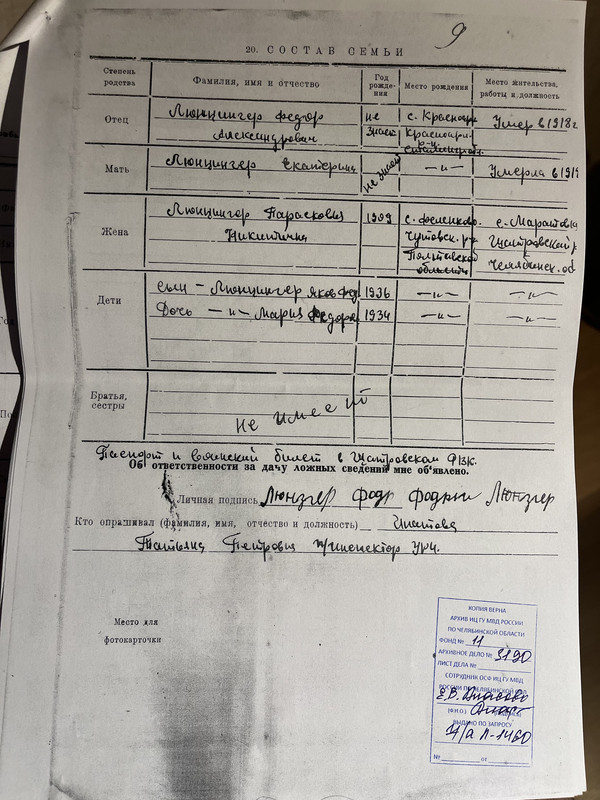 9
20. СОСТАВ СЕМЬИ
Степень родства
Фамилия, имя и отчество
Год рождения
Место рождения
Место жительства, работы и должность
Отец
Люнцингер Федор
Александрович
не знает
с. Краснояр
Умер в 1918 г
Мать
Люнцингер Екатерина
не знает
—и—
Умерла в 191
Жена
Люнцингер Парасковия
Никитична
1909
с. Феленково
Чутовск. р-н
Полтавской
области
Челябинск. об
Дети
сын – Люнцингер Яков Фед.
1936
—и—
—и—
Дочь —и— Мария Федоров
1934
—и—
—и—
Братья, сестры
Не имеет
Паспорт и воинский билет в
Об ответственности за дачу ложных сведений мне об'явлено.
Личная подпись Люнзгер
Люнзгер
Кто опрашивал (фамилия, имя, отчество и должность) Ипатова
Татьяна Петровна инспектор УРЧ.
Место для
фотокарточки
КОПИЯ ВЕРНА
АРХИВ ИЦ ГУ МВД РОССИИ
ПО ЧЕЛЯБИНСКОЙ ОБЛАСТИ
ФОНД № 11
АРХИВНОЕ ДЕЛО № 3190
ЛИСТ ДЕЛА №
СОТРУДНИК ОСФ ИЦ ГУ МВД
РОССИИ ПО ЧЕЛЯБИНСКОЙ ОБЛ.
Е.В.
(Ф.И.О.)
ВЫДАНО ПО ЗАПРОСУ
Л-1460
№ от